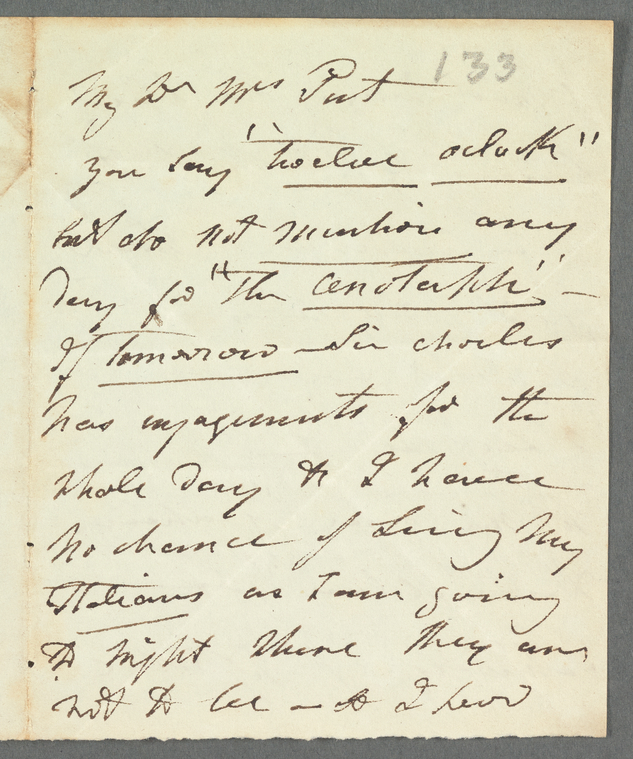 133
My Dr Mrs
you say "twelve oclock"
but do not mention any
day for "the cenotaph" –
If tomorrow – Sir Charles
has engagements for the
whole day & I have
no chance of seeing my
Italians as I am going
to night where they are
not to be – & I